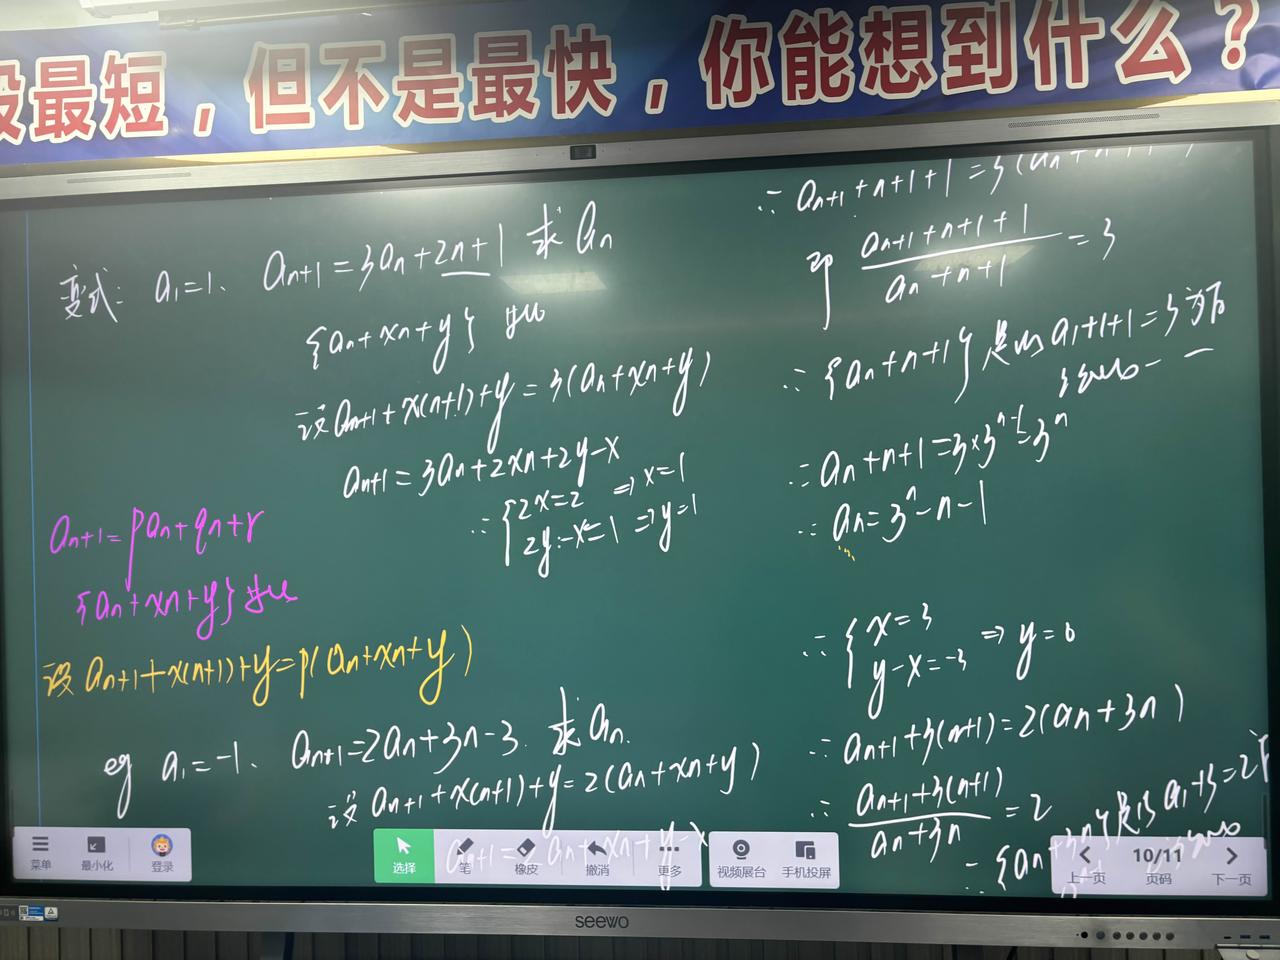 最短，但不是最快，你能想到什么？
变式: a₁=1、 aₙ₊₁=3aₙ+2n+1 求aₙ
{aₙ+xn+y}
设aₙ₊₁+x(n+1)+y=3(aₙ+xn+y)
aₙ₊₁=3aₙ+2xn+2y-x
∴{2x=2 ⇒x=1
2y-x=1 ⇒y=1
aₙ₊₁=paₙ+qn+r
{aₙ+xn+y}
设aₙ₊₁+x(n+1)+y=p(aₙ+xn+y)
eg a₁=-1、 aₙ₊₁=2aₙ+3n-3. 求aₙ.
设aₙ₊₁+x(n+1)+y=2(aₙ+xn+y)
aₙ₊₁=2aₙ+xn+y-x
∴aₙ₊₁+n+1+1=3(aₙ+n
即 (aₙ₊₁+n+1+1)/(aₙ+n+1)=3
∴{aₙ+n+1}是以a₁+1+1=3为首
∴aₙ+n+1=3×3ⁿ⁻¹=3ⁿ
∴aₙ=3ⁿ-n-1
∴{x=3
y-x=-3 ⇒y=0
∴aₙ₊₁+3(n+1)=2(aₙ+3n)
∴(aₙ₊₁+3(n+1))/(aₙ+3n)=2
∴{aₙ+3n}是以a₁+3=2
菜单
最小化
登录
选择
笔
橡皮
撤消
更多
视频展台
手机投屏
上一页
10/11
页码
下一页
seewo